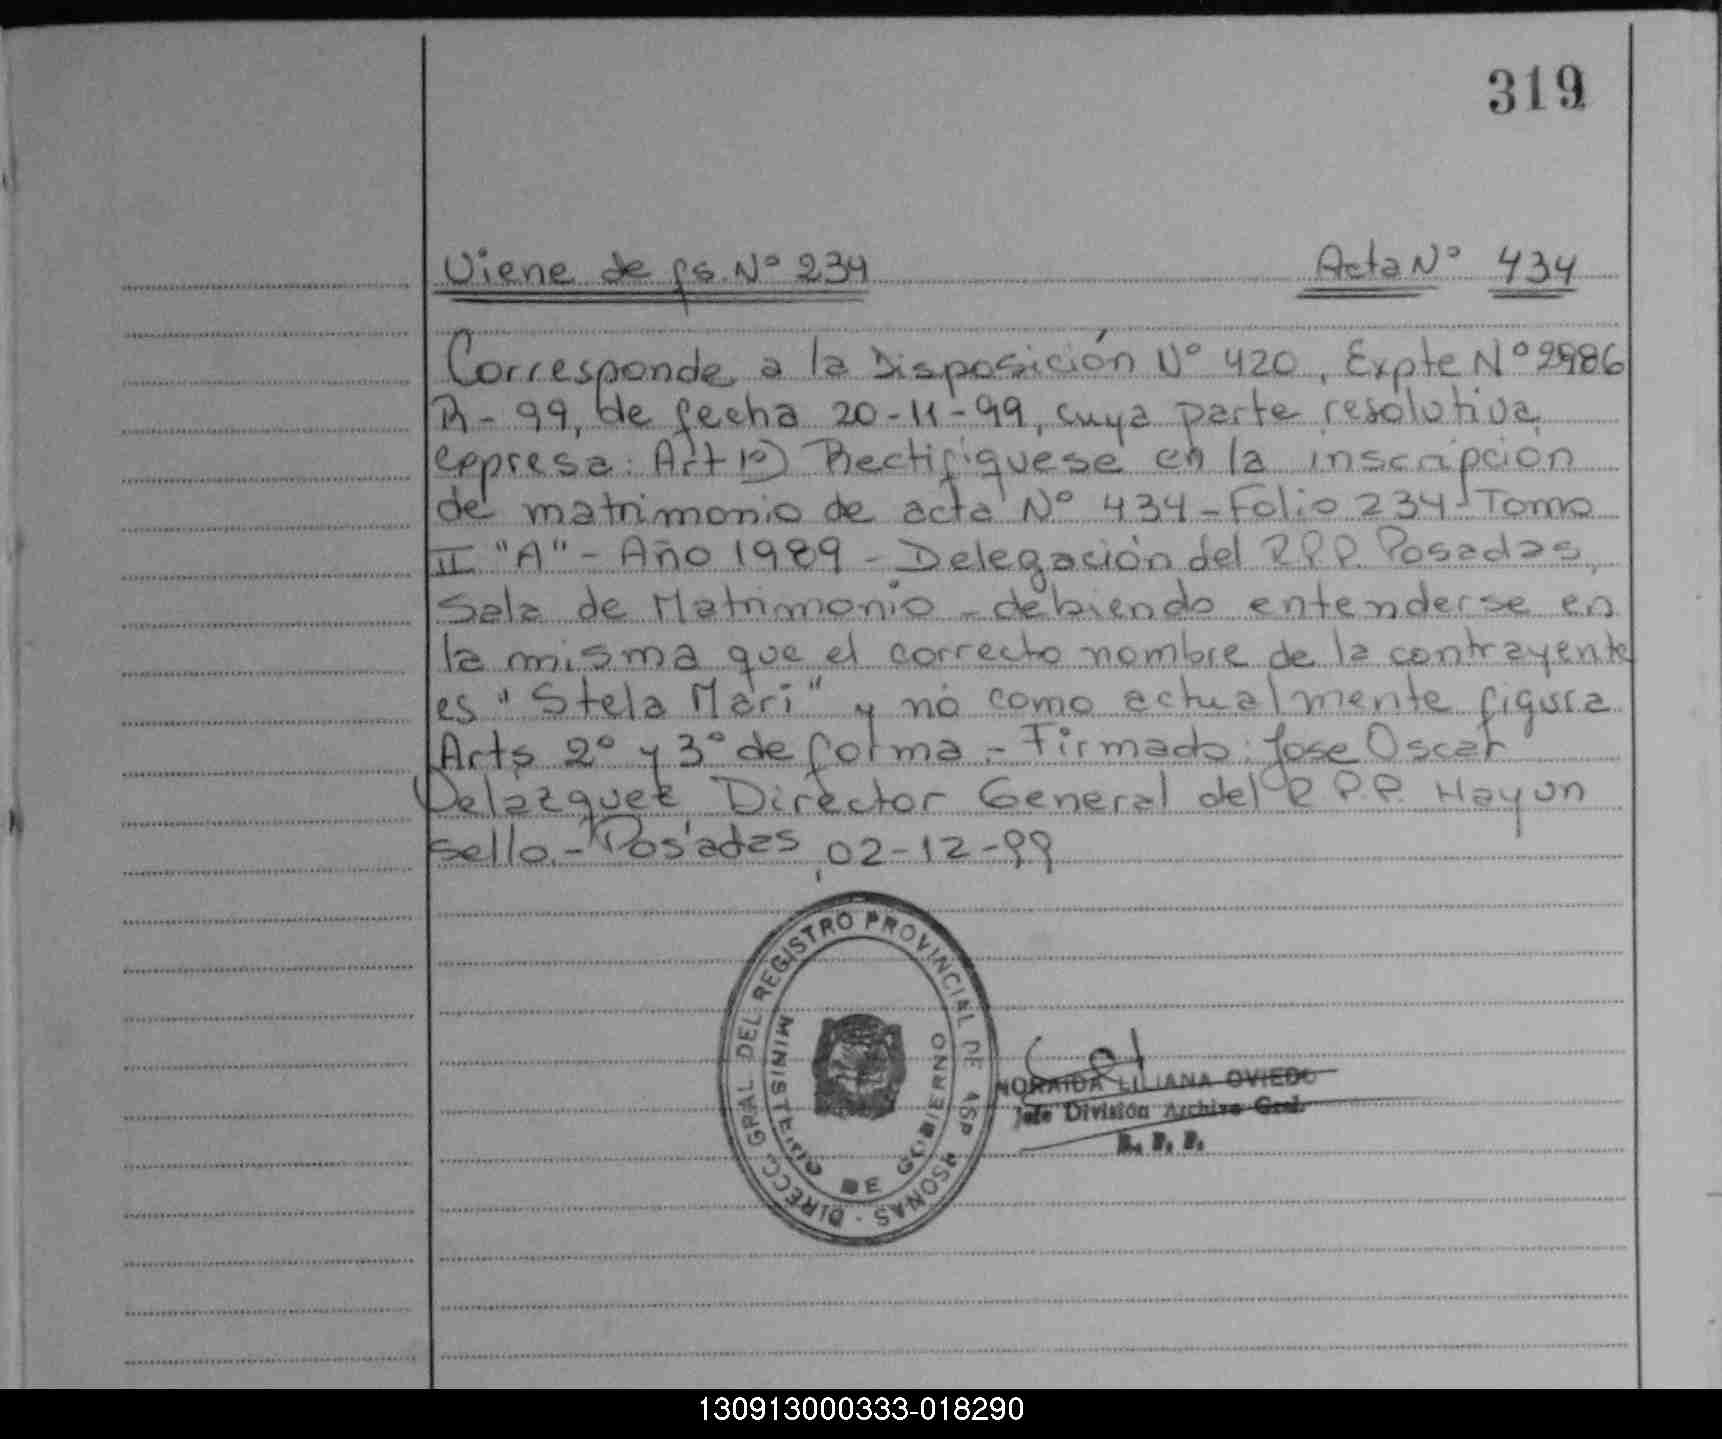 319
Viene de fs. Nº 234 Acta Nº 434
Corresponde a la Disposición Nº 420, Expte Nº 2986
R - 99, de fecha 20-11-99, cuya parte resolutiva
expresa: Art 1º) Rectifiquese en la inscripción
de matrimonio de acta Nº 434 - Folio 234 - Tomo
II "A" - Año 1989 - Delegación del R.P.P. Posadas,
Sala de Matrimonio - debiendo entenderse en
la misma que el correcto nombre de la contrayente
es "Stela Mari" y no como actualmente figura
Arts 2º y 3º de forma. - Firmado: Jose Oscar
Velazquez Director General del R.P.P. Hay un
sello. - Posadas, 02-12-99
DIRECC. GRAL DEL REGISTRO PROVINCIAL DE
MINISTERIO DE GOBIERNO
NORAIDA LILIANA OVIEDO
Jefe División Archivo Gral.
R. P. P.
130913000333-018290